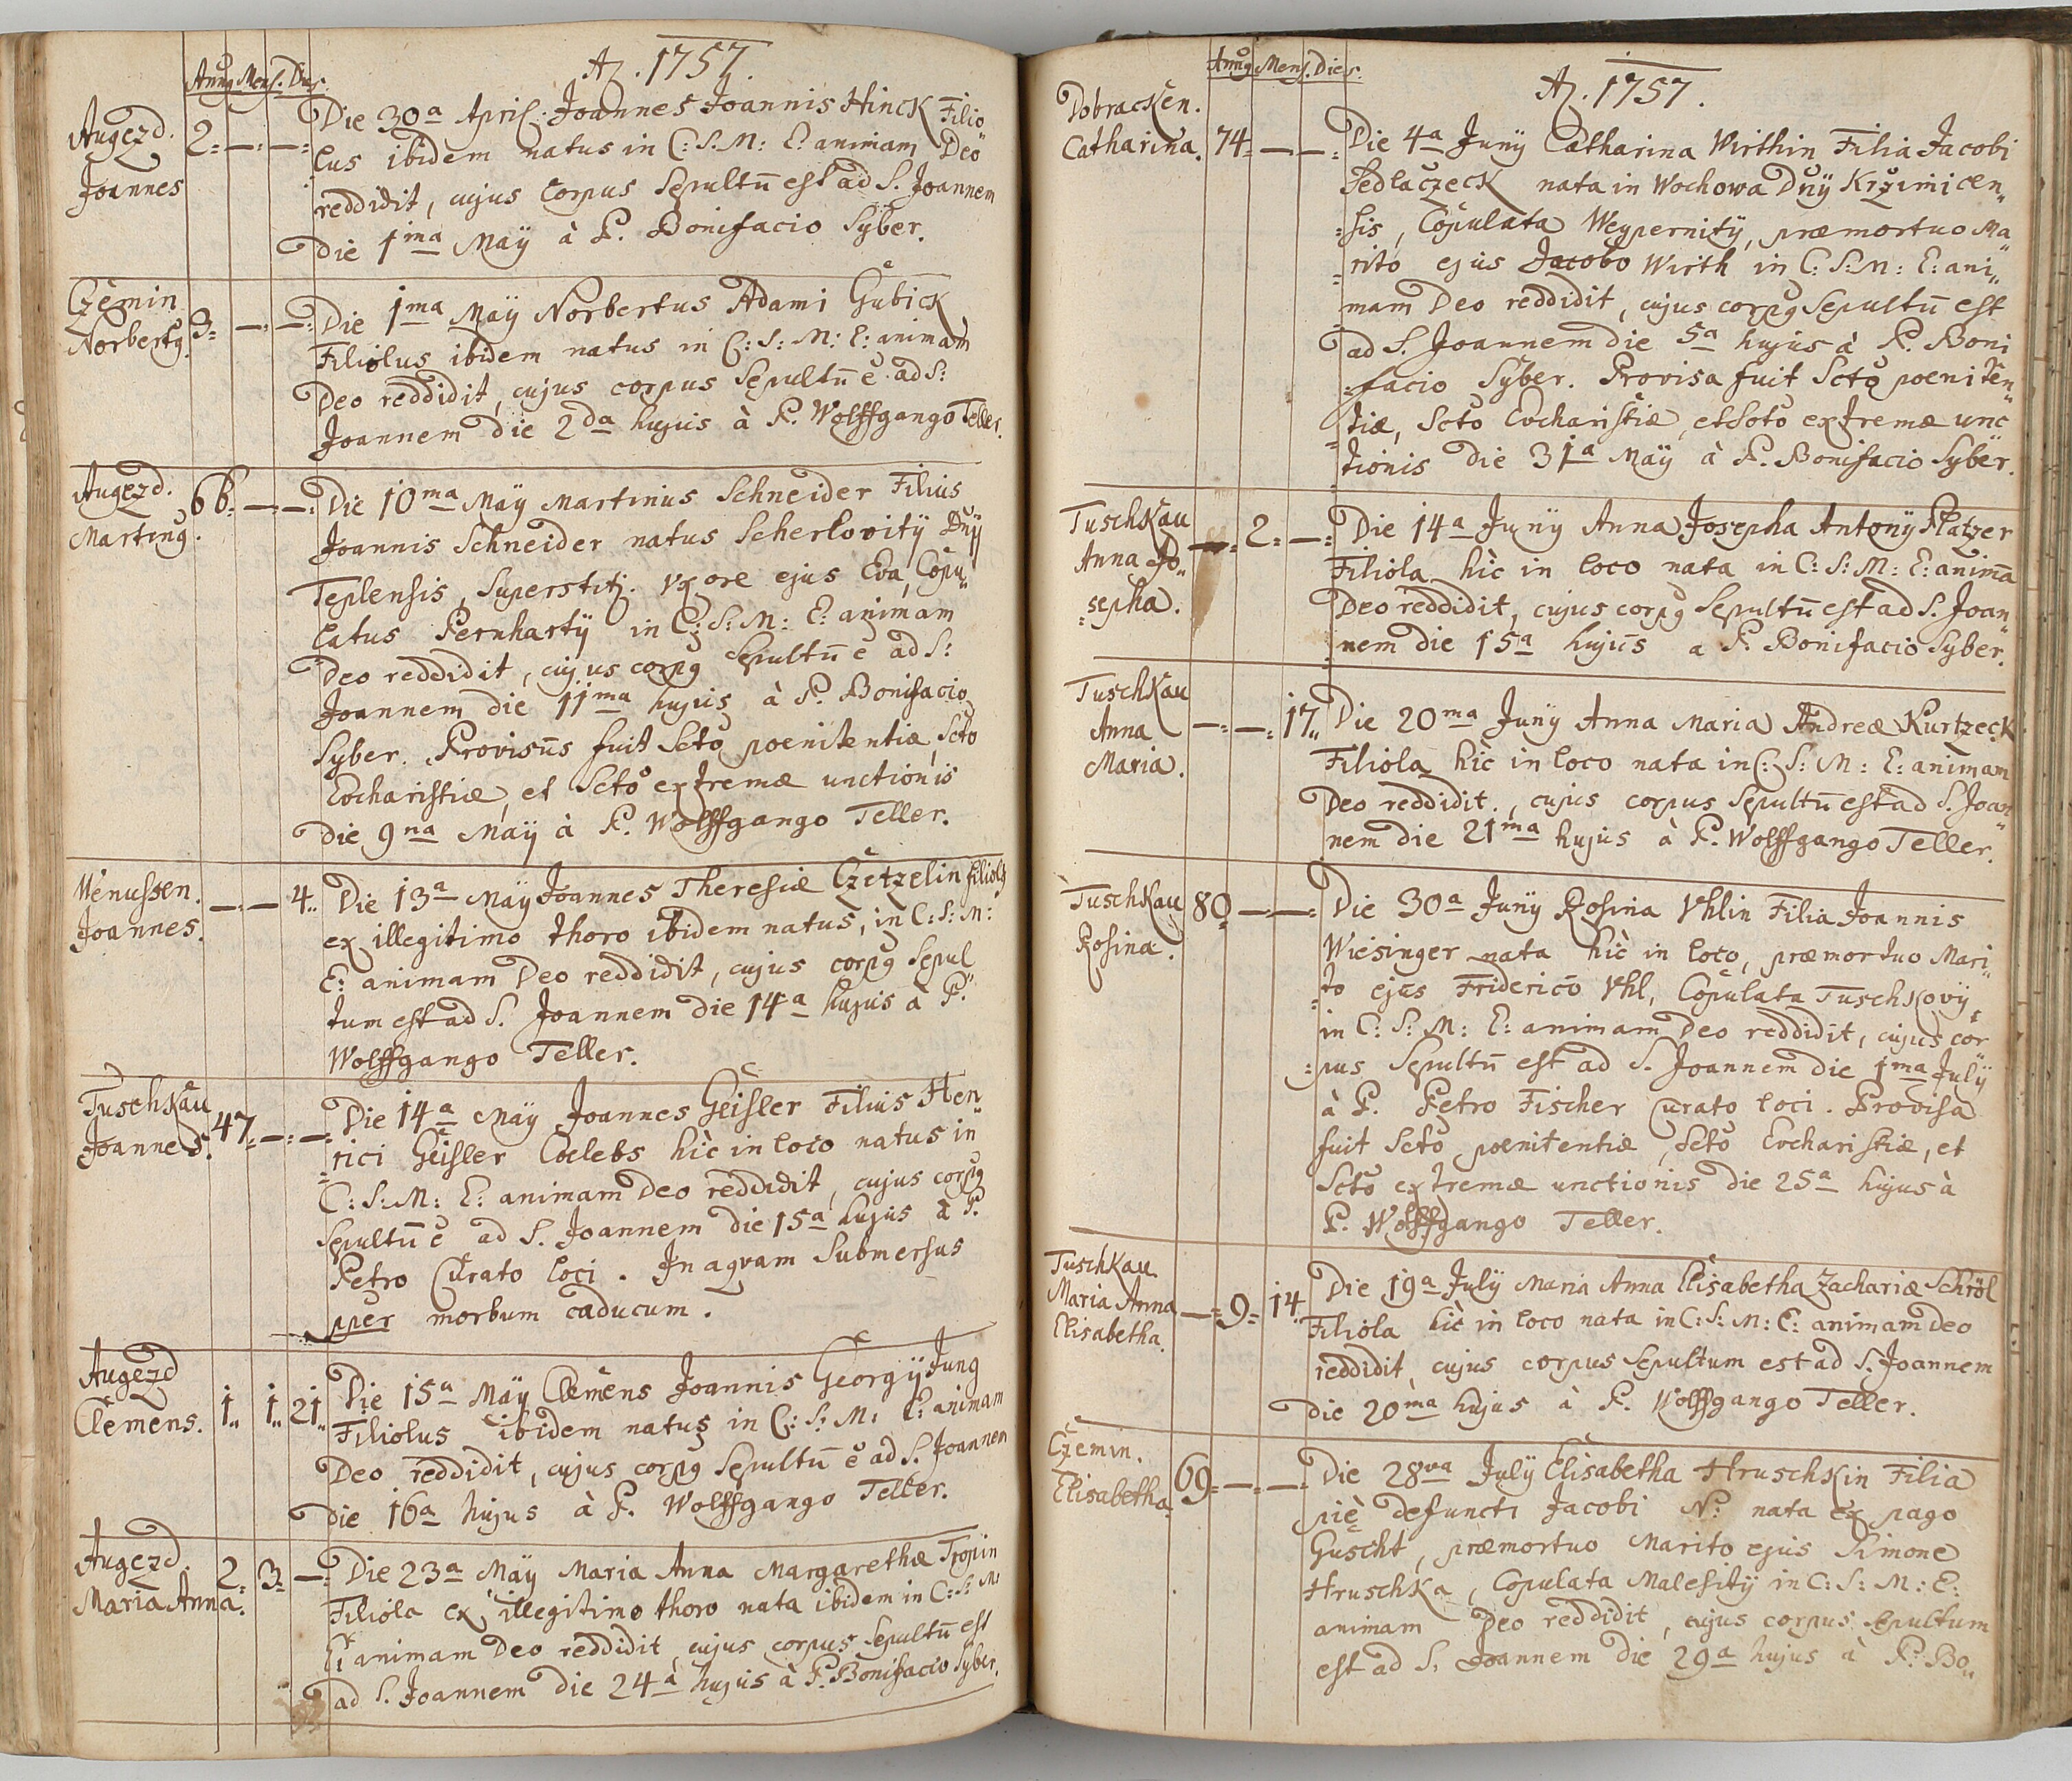 Annꝰ Mens. Dies.
Aō. 1757.
Augezd.
Joannes
2=
Die 30a April: Joannes Joannis Hinck Filio
lus ibidem natus in C: S: M: E: animam Deo
reddidit, cujus Corpus Sepultū est ad S. Joannem
die 1ma Maÿ à P. Bonifacio Syber.
Czemin
Norbertꝰ.
3=
Die 1ma Maÿ Norbertus Adami Gubick
Filiolus ibidem natus in C: S: M: E: animam
Deo reddidit, cujus corpus Sepultū ē ad S:
Joannem die 2da hujus à P. Wolffgango Teller.
Augezd.
Martinꝰ.
66=
Die 10ma Maÿ Martinus Schneider Filius
Joannis Schneider natus Scherlovitÿ Dnÿ
Teplensis, Superstitj. Vxore ejus Eva, Copu„
latus Pernhartÿ in C: S: M: E: animam
Deo reddidit, cujus corpꝰ Sepultū ē ad S:
Joannem die 11ma hujus à P. Bonifacio
Syber. Provisus fuit Scto poenitentiæ, Scto
Eucharistiæ, et Scto extremæ unctionis
die 9na Maÿ à P. Wolffgango Teller.
Wenussen.
Joannes.
4„
Die 13a Maÿ Joannes Theresiæ Czetzelin filiolꝰ
ex illegitimo thoro ibidem natus, in C: S: M:
E: animam Deo reddidit, cujus corpꝰ Sepul„
tum est ad S. Joannem die 14a hujus à P.
Wolffgango Teller.
Tuschkau
Joannes.
47=
Die 14a Maÿ Joannes Geisler Filius Hen„
rici Geisler Coelebs hìc in loco natus in
C: S: M: E: animam Deo reddidit, cujus corpꝰ
Sepultū ē ad S. Joannem die 15a hujus à P.
Petro Curato loci. In aqvam Submersus
pper morbum caducum.
Augezd
Clemens.
1„ 1„ 21„
Die 15a Maÿ Clemens Joannis Georgÿ Jung
Filiolus ibidem natus in C: S: M: E: animam
Deo reddidit, cujus corpꝰ Sepultū ē ad S. Joannem
die 16a hujus à P. Wolffgango Teller.
Augezd.
Maria Anna.
2= 3=
Die 23a Maÿ Maria Anna Margarethæ Tropin
Filiola ex illegitimo thoro nata ibidem in C: S: M:
E: animam Deo reddidit, cujus corpus Sepultū est
ad S. Joannem die 24a hujus à P. Bonifacio Syber.
Annꝰ Mens. Dies.
Aō. 1757.
Dobracken.
Catharina.
74=
Die 4a Junÿ Catharina Wirthin Filia Jacobi
Sedlaczeck nata in Wochowa Dnÿ Krzimicen„
=sis, Copulata Weypernitÿ, præmortuo Ma„
=rito ejus Jacobo Wirth in C: S: M: E: ani„
mam Deo reddidit, cujus corpꝰ Sepultū est
ad S. Joannem die 5a hujus à P. Boni
=facio Syber. Provisa fuit Scto poeniten„
=tiæ, Scto Eucharistiæ, et Scto extremæ unc
=tionis die 31a Maÿ à P. Bonifacio Syber.
Tuschkau
Anna Jo„
=sepha.
2=
Die 14a Junÿ Anna Josepha Antonÿ Platzer
Filiola hìc in loco nata in C: S: M: E: animā
Deo reddidit, cujus corpꝰ Sepultū est ad S. Joan„
nem die 15a hujus a P. Bonifacio Syber.
Tuschkau
Anna
Maria.
17„
Die 20ma Junÿ Anna Maria Andreæ Kurtzeck
Filiola hìc in loco nata in C: S: M: E: animam
Deo reddidit, cujus corpus Sepultū est ad S. Joan„
nem die 21ma hujus à P. Wolffgango Teller.
Tuschkau
Rosina.
80
Die 30a Junÿ Rosina Vhlin Filia Joannis
Wiesinger nata hìc in loco, præmortuo Mari„
=to ejus Friderico Vhl, Copulata Tuschkovÿ,
in C: S: M: E: animam Deo reddidit, cujus cor
=pus Sepultū est ad S. Joannem die 1ma Julÿ
à P. Petro Fischer Curato loci. Provisa
fuit Scto poenitentiæ, Scto Eucharistiæ, et
Scto extremæ unctionis die 25a hujus à
P. Wolffgango Teller.
Tuschkau
Maria Anna
Elisabetha.
9= 14„
Die 19a Julÿ Maria Anna Elisabetha Zachariæ Schröl
Filiola hìc in loco nata in C: S: M: E: animam Deo
reddidit, cujus corpus Sepultum est ad S. Joannem
die 20ma hujus à P. Wolffgango Teller.
Czemin.
Elisabetha.
69=
Die 28va Julÿ Elisabetha Hruschkin Filia
piè defuncti Jacobi N: nata ex pago
Guscht, præmortuo Marito ejus Simone
Hruschka, Copulata Malesitÿ in C: S: M: E:
animam Deo reddidit, cujus corpus Sepultum
est ad S. Joannem die 29a hujus à P. Bo„